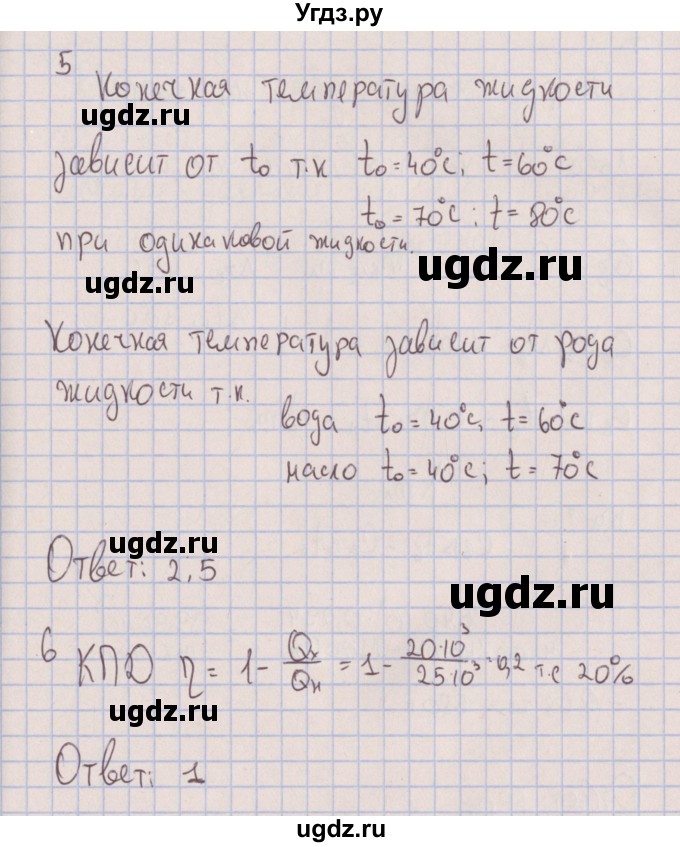 Угдз.ру
5
Конечная температура жидкости
ugdz.ru
зависит от t₀ т.к t₀=40°C; t=60°C
t₀=70°C; t=80°C
при одинаковой жидкости.
ugdz.ru
ugdz.ru
Конечная температура зависит от рода
жидкости т.к.
ugdz.ru
вода t₀=40°C, t=60°C
масло t₀=40°C; t=70°C
ugdz.ru
Ответ: 2,5
ugdz.ru
6 КПД η = 1 - Qₓ/Qₙ = 1 - 20·10³/25·10³ = 0,2 т.е 20%
ugdz.ru
Ответ: 1
ugdz.ru
ugdz.ru